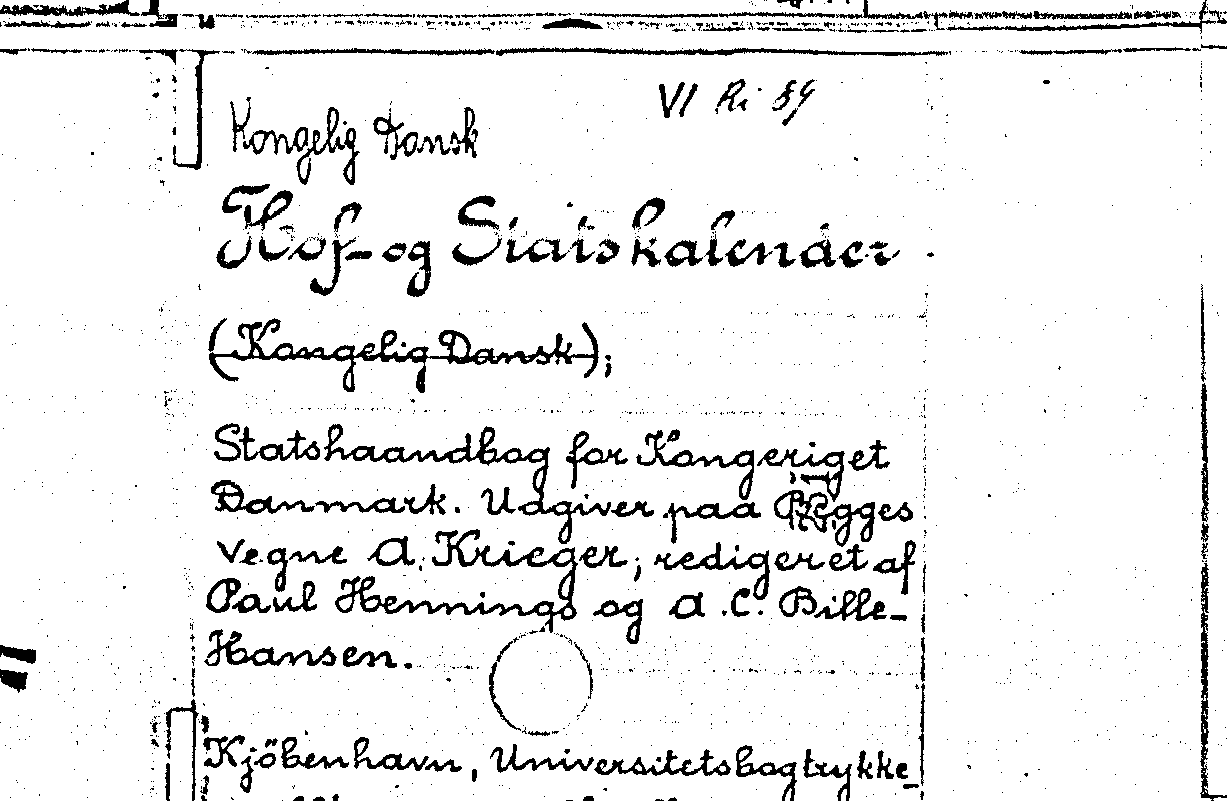 VI Ri 89
Kongelig Dansk
Hof- og Statskalender
(Kongelig Dansk);
Statshaandbog for Kongeriget
Danmark. Udgiver paa Begges
Vegne A. Krieger; redigeret af
Paul Hennings og A. C. Bille-
Hansen.
Kjöbenhavn, Universitetsbogtrykke-